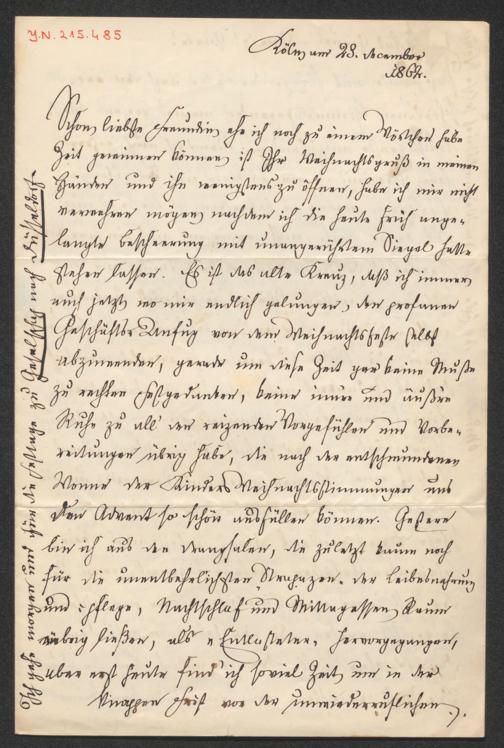 J.N. 215.485
Köln am 23. December
1864.
Schon, liebste Freundin, ehe ich noch zu einem Wörtchen habe
Zeit gewinnen können, ist Ihr Weihnachtsgruß in meinen
Händen und ihn wenigstens zu öffnen, habe ich mir nicht
verwehren mögen, nachdem ich die heute früh ange-
langte Bescheerung mit unangerührtem Siegel hatte
stehen lassen. Es ist das alte Kreuz, daß ich immer,
auch jetzt, wo mir endlich gelungen, den profanen
Geschäfts-Unfug von dem Weihnachtsfeste selbst
abzuwenden, gerade um diese Zeit gar keine Muße
zu rechten Festgedanken, keine innre und äußre
Ruhe zu all den reizenden Vorgefühlen und Vorbe-
reitungen übrig habe, die nach der entschwundenen
Wonne der Kinder-Weihnachtsstimmungen uns
den Advent so schön ausfüllen können. Gestern
bin ich aus den Drangsalen, die zuletzt kaum noch
für die unentbehrlichsten Strapazen der Leibesnahrung
und -pflege, Nachtschlaf und Mittagessen Raum
übrig ließen, als "Entlasteter" hervorgegangen,
aber erst heute find' ich soviel Zeit, um in der
knappen Frist vor der unwiederruflichen
Ich gehe morgen und für die Festtage zu Geselschap nach Düsseldorf.